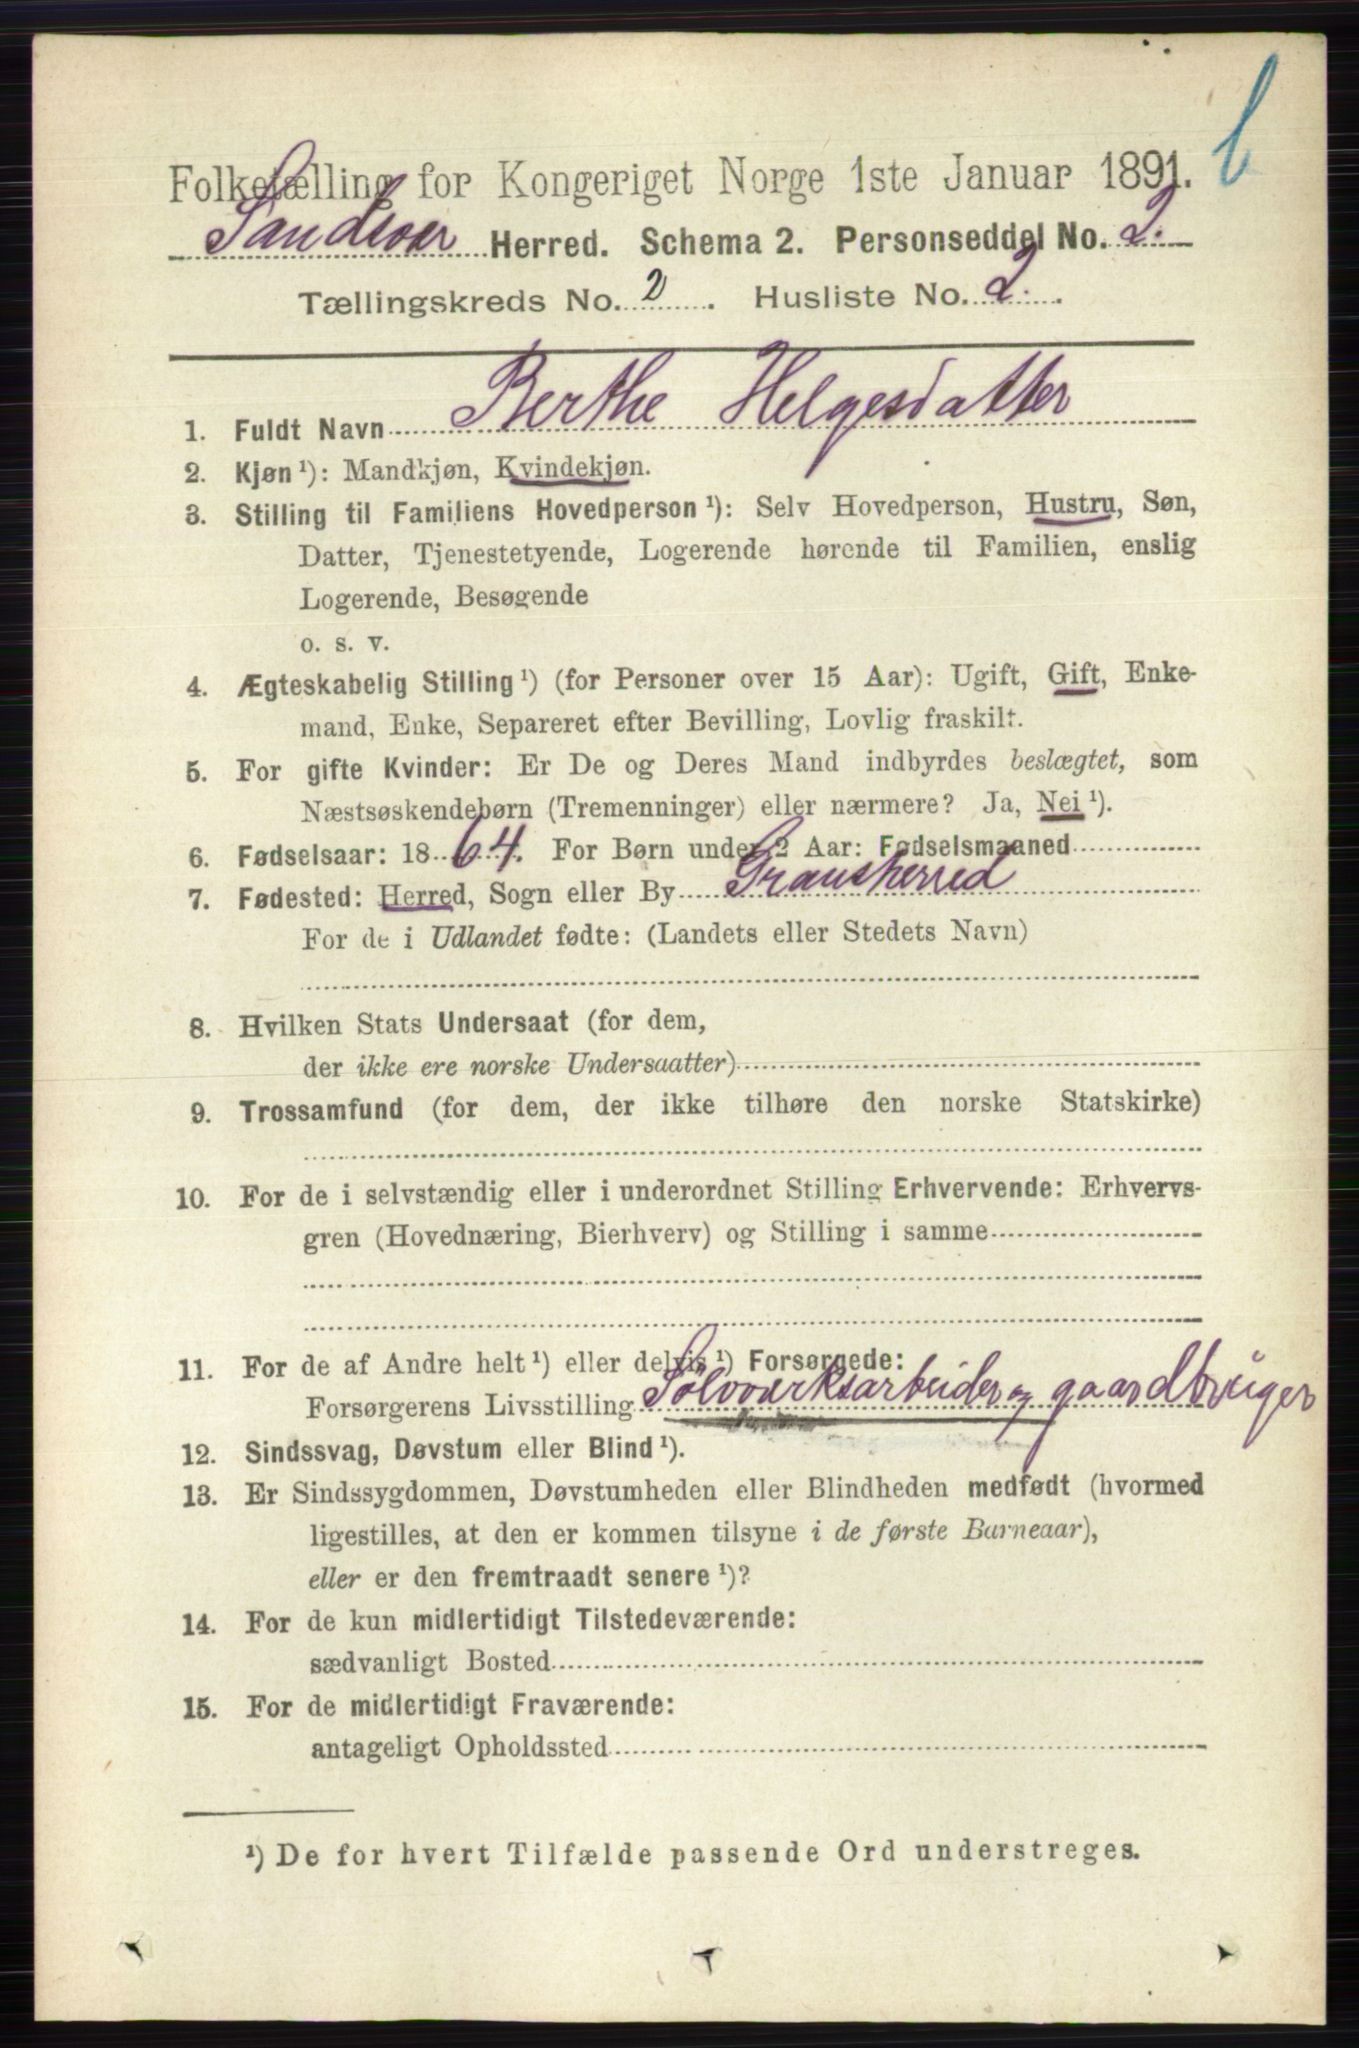 b
Folketælling for Kongeriget Norge 1ste Januar 1891.
Sandsvær Herred. Schema 2. Personseddel No. 2.
Tællingskreds No. 2. Husliste No. 2.
1. Fuldt Navn Berthe Helgesdatter
2. Kjøn ¹): Mandkjøn, Kvindekjøn.
3. Stilling til Familiens Hovedperson ¹): Selv Hovedperson, Hustru, Søn,
Datter, Tjenestetyende, Logerende hørende til Familien, enslig
Logerende, Besøgende
o. s. v.
4. Ægteskabelig Stilling ¹) (for Personer over 15 Aar): Ugift, Gift, Enke-
mand, Enke, Separeret efter Bevilling, Lovlig fraskilt.
5. For gifte Kvinder: Er De og Deres Mand indbyrdes beslægtet, som
Næstsøskendebørn (Tremenninger) eller nærmere? Ja, Nei ¹).
6. Fødselsaar: 1864. For Børn under 2 Aar: Fødselsmaaned
7. Fødested: Herred, Sogn eller By Gransherred
For de i Udlandet fødte: (Landets eller Stedets Navn)
8. Hvilken Stats Undersaat (for dem,
der ikke ere norske Undersaatter)
9. Trossamfund (for dem, der ikke tilhøre den norske Statskirke)
10. For de i selvstændig eller i underordnet Stilling Erhvervende: Erhvervs-
gren (Hovednæring, Bierhverv) og Stilling i samme
11. For de af Andre helt ¹) eller delvis ¹) Forsørgede:
Forsørgerens Livsstilling Sølvværksarbeider og gaardbruger
12. Sindssvag, Døvstum eller Blind ¹).
13. Er Sindssygdommen, Døvstumheden eller Blindheden medfødt (hvormed
ligestilles, at den er kommen tilsyne i de første Barneaar),
eller er den fremtraadt senere ¹)?
14. For de kun midlertidigt Tilstedeværende:
sædvanligt Bosted
15. For de midlertidigt Fraværende:
antageligt Opholdssted
¹) De for hvert Tilfælde passende Ord understreges.